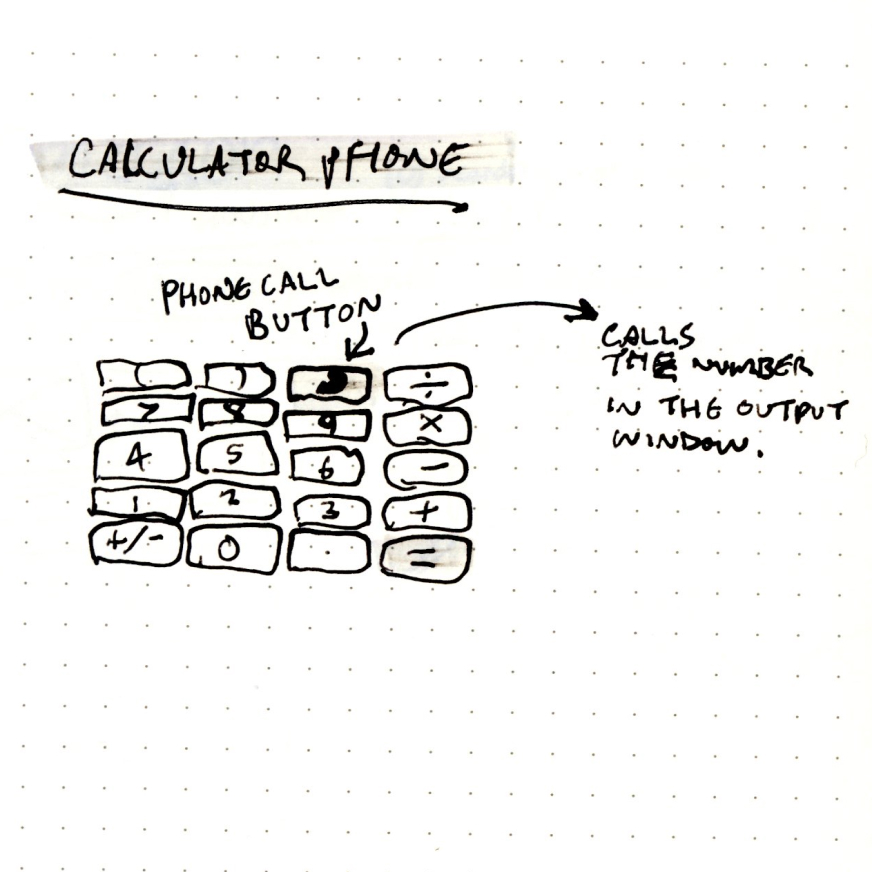 CALCULATOR PHONE
PHONE CALL
BUTTON
CALLS
THE NUMBER
IN THE OUTPUT
WINDOW.
( ) ÷
7 8 9 ×
4 5 6 -
1 2 3 +
+/- 0 . =